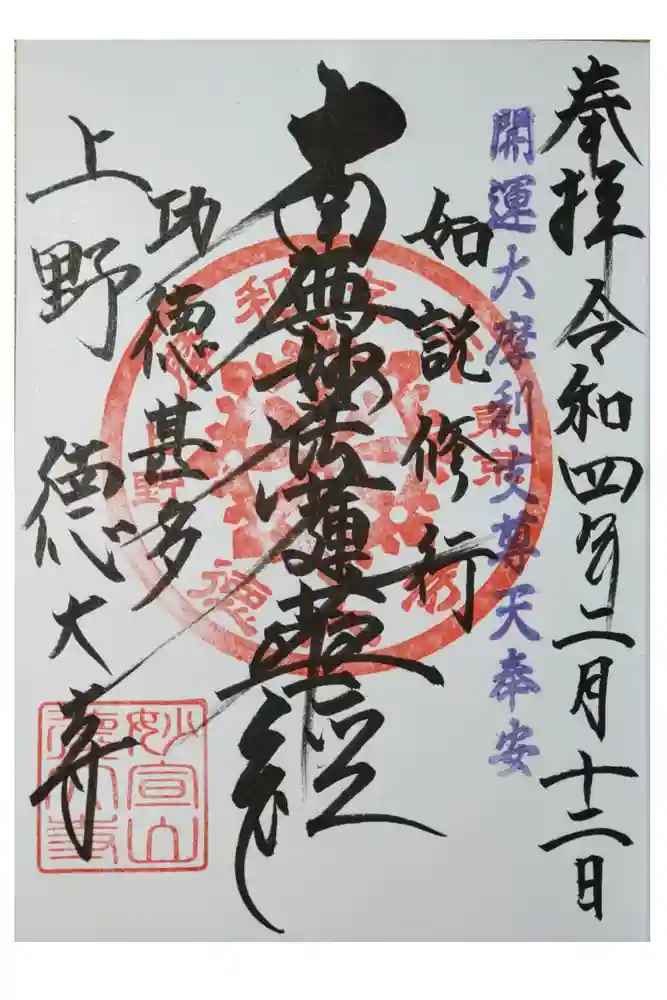 奉拝 令和四年二月十二日
開運大摩利支尊天奉安
如説修行
南無妙法蓮華経
功徳甚多
上野 徳大寺
妙宣山
徳大寺
東京